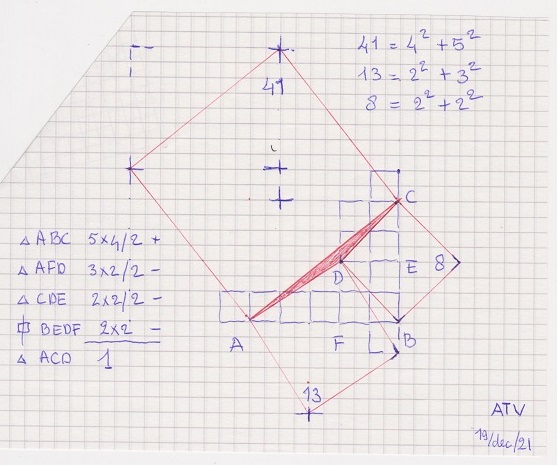 41 = 4² + 5²
13 = 2² + 3²
8 = 2² + 2²
41
C
8
D
E
A
F
B
13
△ ABC 5x4/2 +
△ AFD 3x2/2 -
△ CDE 2x2/2 -
BEDF 2x2 -
△ ACD 1
ATV
19/dec/21